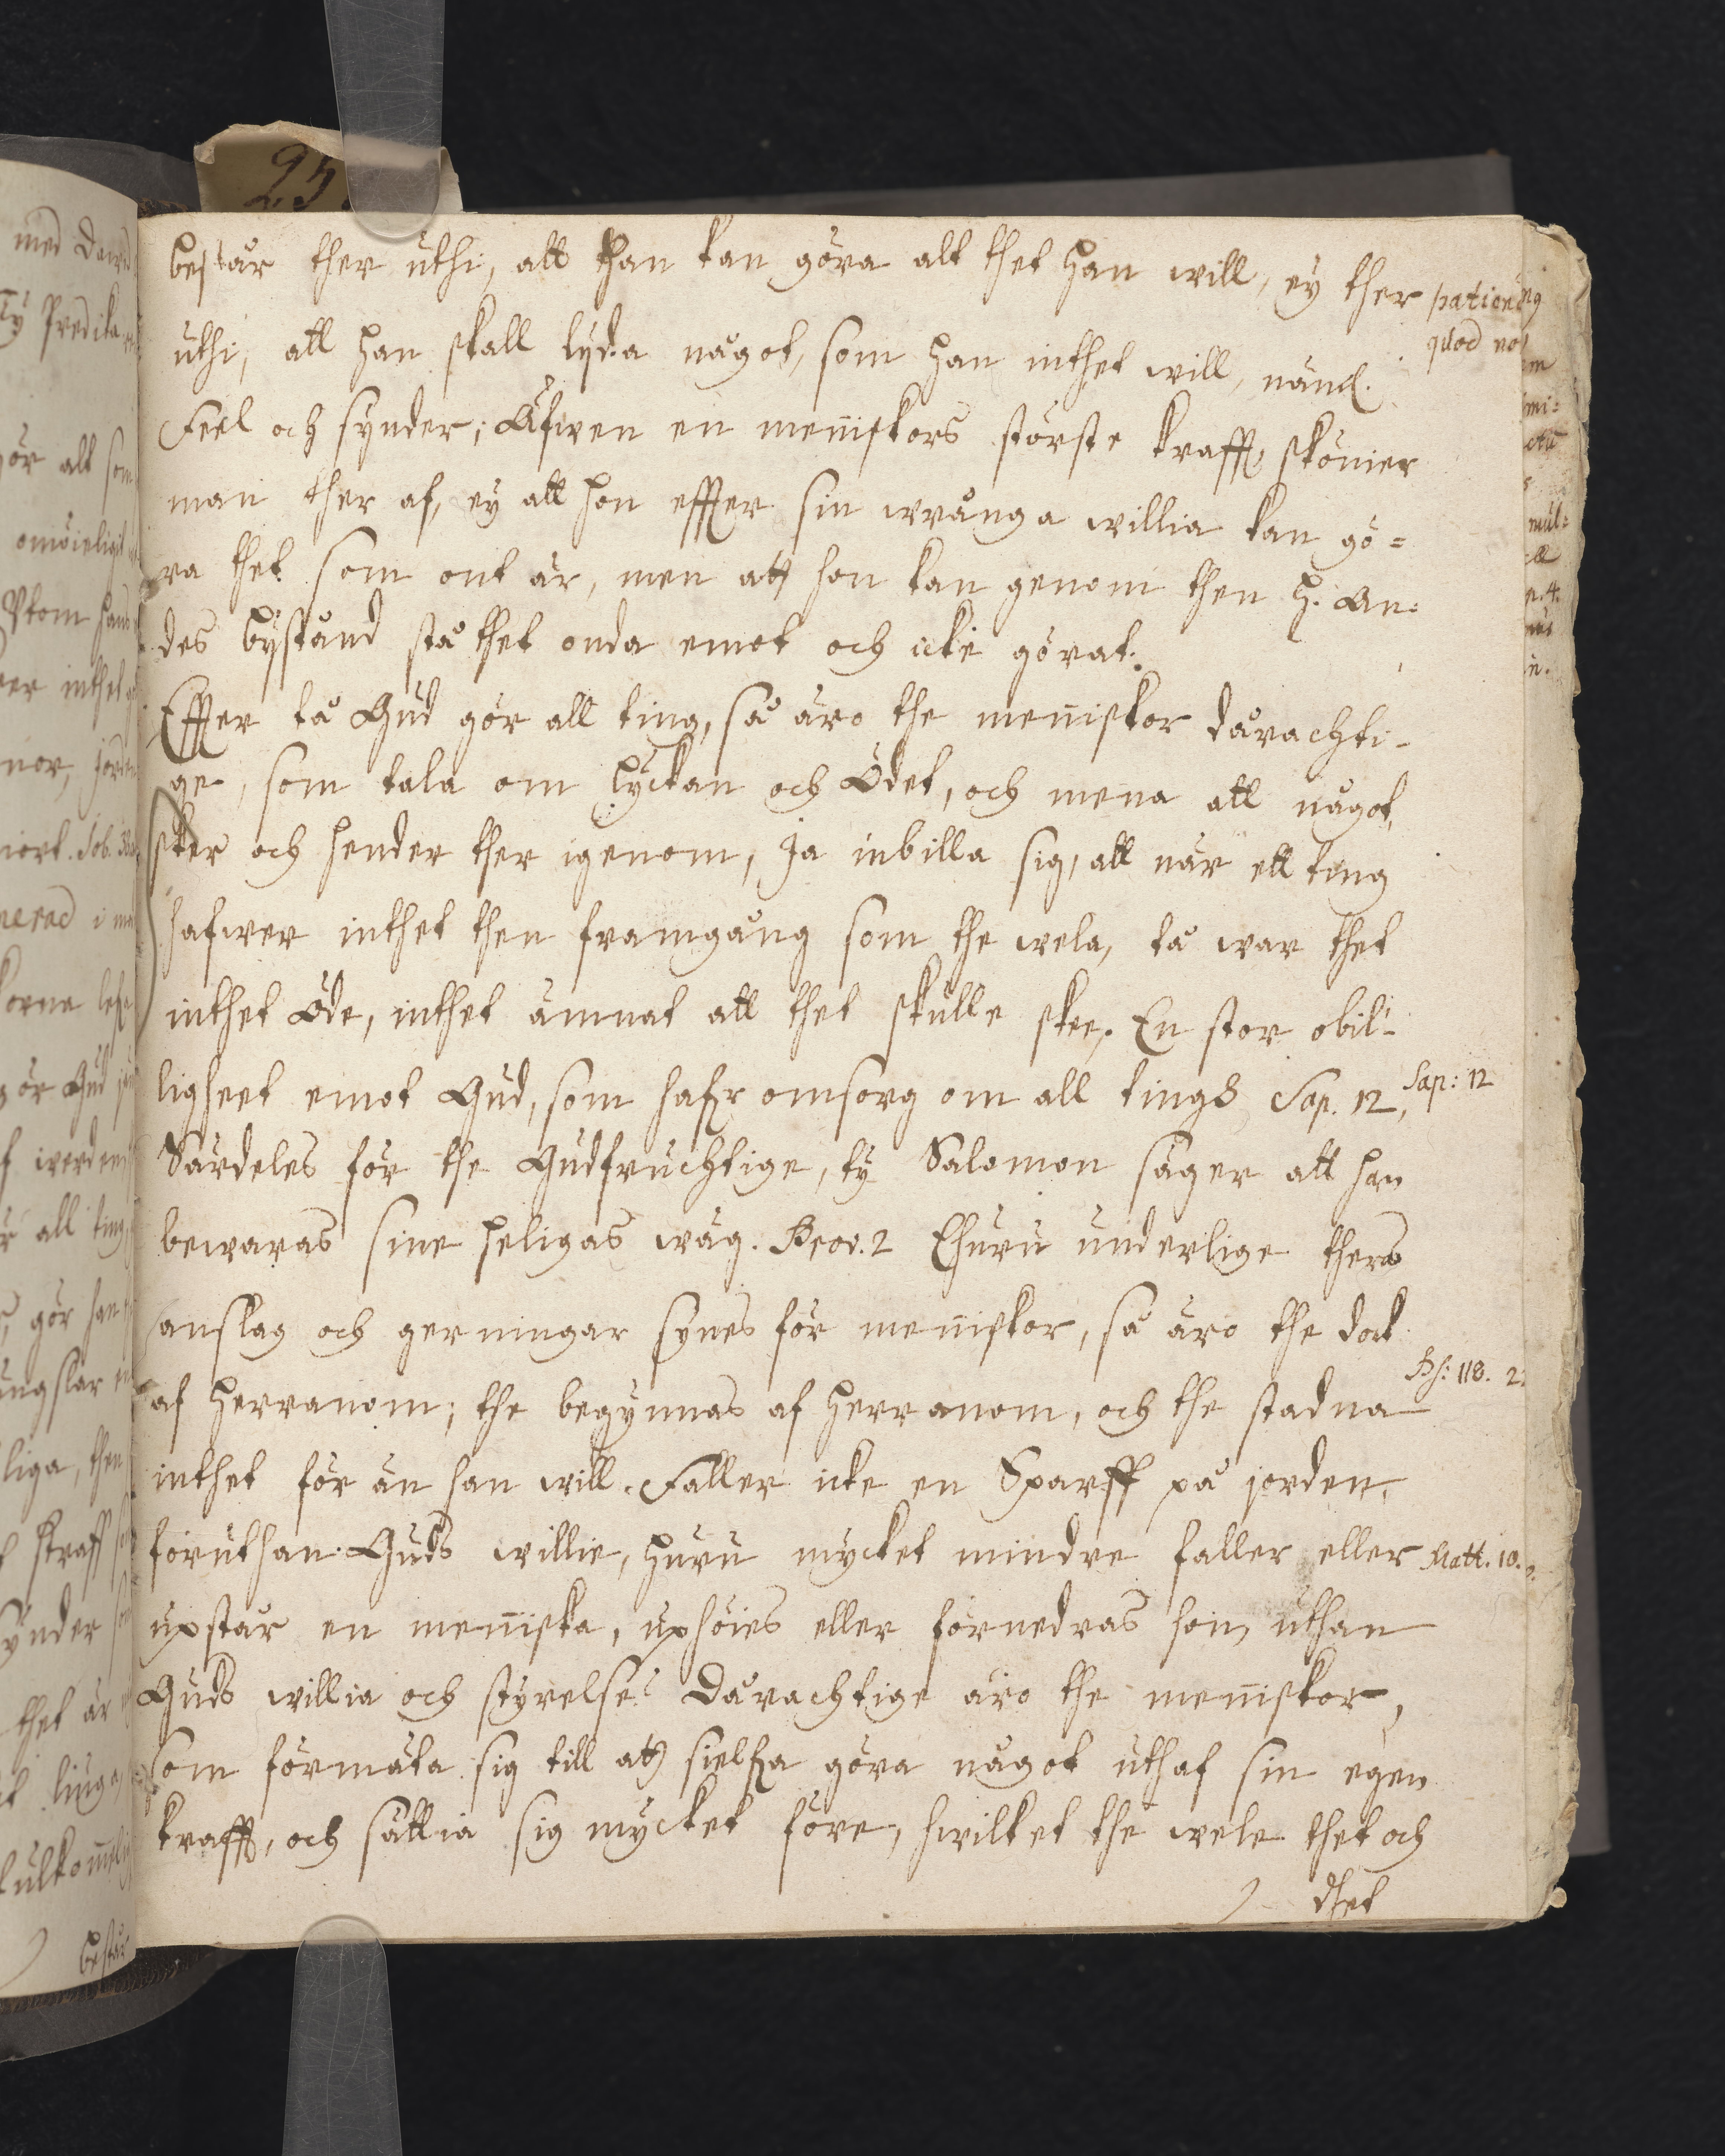 består ther uthi, att han kan göra alt thet han will, ey ther
uthi, att han skall lyda något, som han inthet will, näml.
Feel och synder; Äfwen en menniskors störste krafft skönier
man ther af, ey att hon effter sin wrånga willia kan gö=
ra thet som ont är, men att hon kan genom then H. An=
des bijstånd stå thet onda emot och icke görat.
Effter tå Gud gör all ting, så äro the menniskor dårachti-
ge, som tala om lyckan och Ödet, och mena att något
sker och hender ther igenom, Ja inbilla sig, att när ett ting
hafwer inthet then framgång som the wela, tå war thet
inthet Öde, inthet ämnat att thet skulle skee. En stor obil-
ligheet emot Gud, som hafr omsorg om all ting Sap. 12,
Särdeles för the Gudfruchtige, ty Salomon säger att han
bewaras sine heligas wäg. Prov. 2 Ehuru underlige thers
anslag och gerningar synes för menniskor, så äro the dock
af Herranom; the begynnas af Herranom, och the stadna
inthet för än han will. Faller icke en Sparff på jorden
föruthan Guds willie, huru mycket mindre faller eller
upstår en menniska, uphöies eller förnedras hon uthan
Guds willia och styrelse? Dårachtige äro the menniskor,
som förmäta sig till att sielfva göra något uthaf sin egen
krafft, och sättia sig mycket före, hwilket the wele thet och
thet
quod
Sap: 12
Ps: 118. 2
Matt. 10.
med
Ty Predika
ör alt som
omöieligit
Utom hans
er inthet
Job.
i
ör Gud
all ting
gör han
liga, then
straff
synder
thet är
består